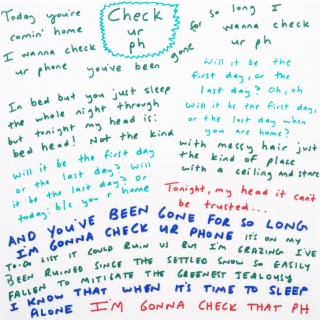 Today you're
comin' home
I wanna check
ur phone you've been gone
for so long I
wanna check
ur ph
Check
ur
ph
Will it be the
first day, or the
last day? Oh, oh
Will it be the first day,
or the last day when
you are home?
In bed but you just sleep
the whole night through
but tonight my head is:
bed head! Not the kind
with messy hair just
the kind of place
with a ceiling and stare
Will it be the first day
or the last day? Will
it be the last day? Or
today: b/c you r home
Tonight, my head it can't
be trusted...
AND YOU'VE BEEN GONE FOR SO LONG
I'M GONNA CHECK UR PHONE IT'S ON MY
TO-DO LIST IT COULD RUIN US BUT I'M GRAZING I'VE
BEEN RUINED SINCE THE SETTLED SNOW SO EASILY
FALLEN TO MITIGATE THE GREENEST JEALOUSY
I KNOW THAT WHEN IT'S TIME TO SLEEP
ALONE I'M GONNA CHECK THAT PH